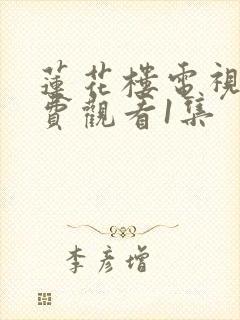 蓮花樓電視
費觀看1集
李彥增